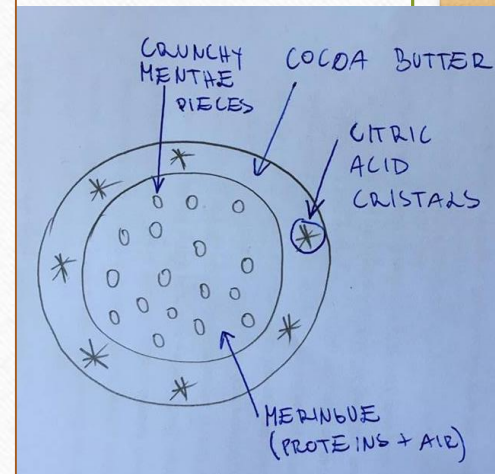 CRUNCHY
MENTHE
PIECES
COCOA BUTTER
CITRIC
ACID
CRISTALS
MERINGUE
(PROTEINS + AIR)